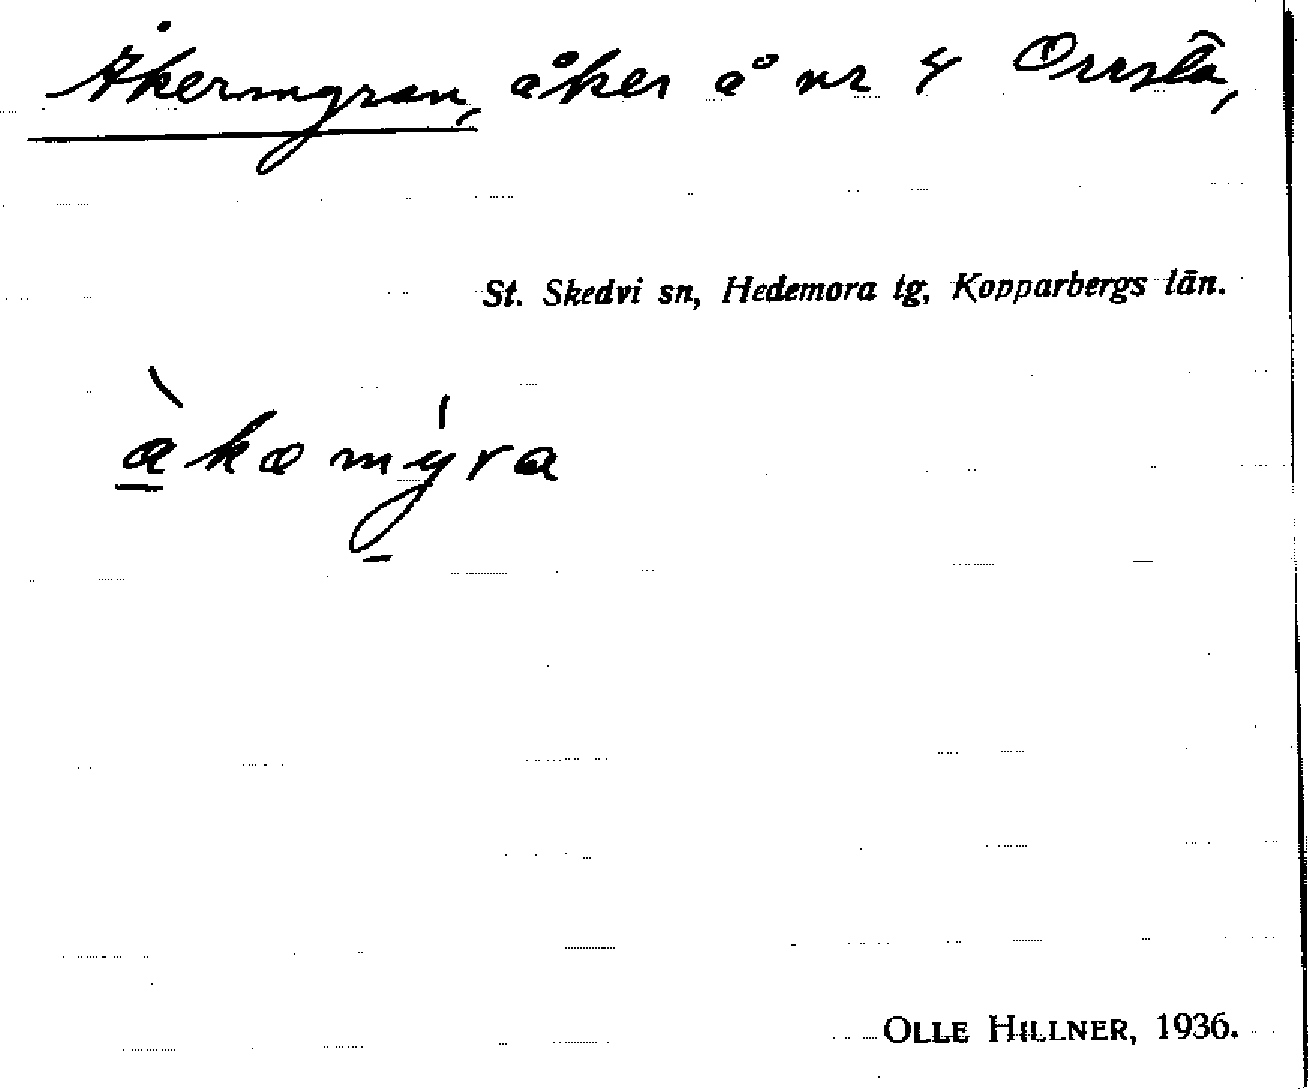 Åkermyran, åker å nr 4 Orrsta,
St. Skedvi sn, Hedemora tg, Kopparbergs län.
àkɷmýra
OLLE HILLNER, 1936.